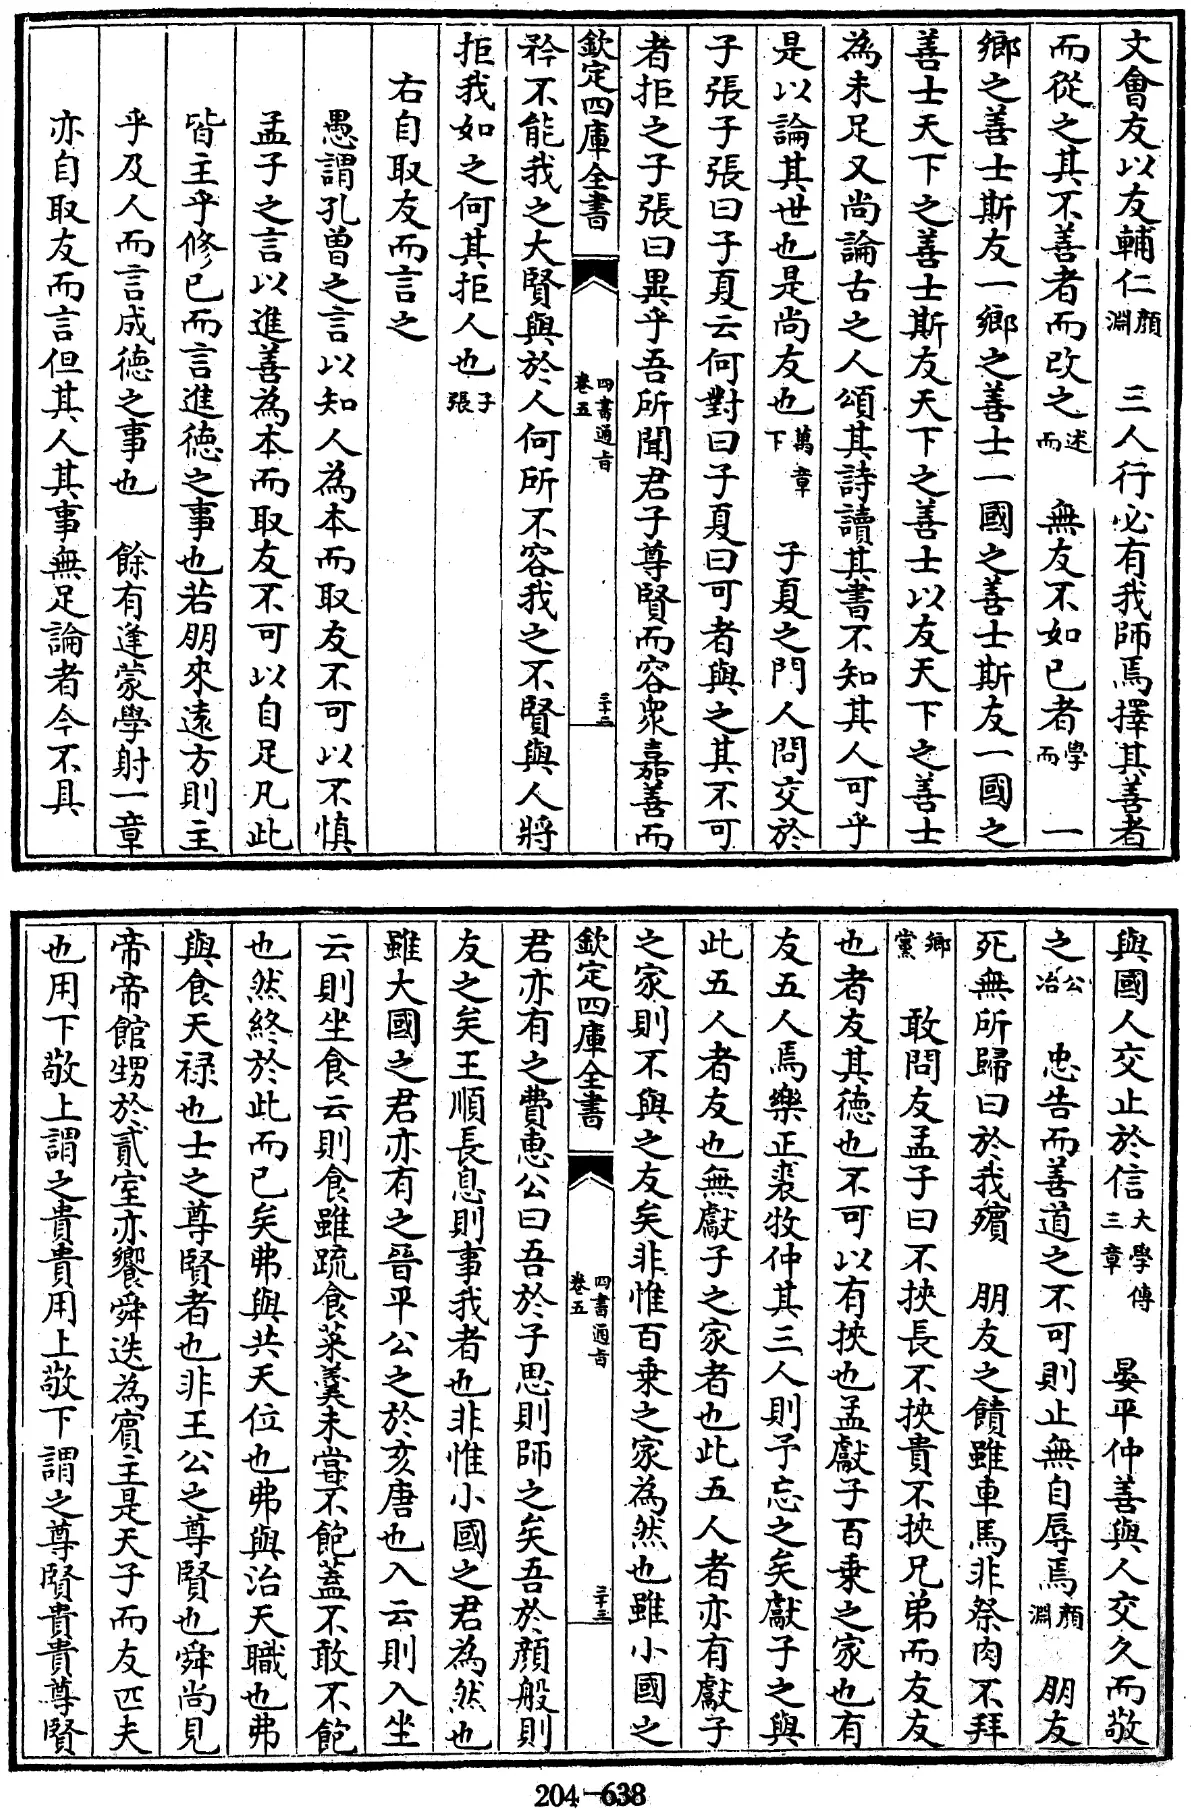 文會友以友輔仁顔淵　三人行必有我師焉擇其善者
而從之其不善者而改之述而　無友不如已者學而　一
鄉之善士斯友一鄉之善士一國之善士斯友一國之
善士天下之善士斯友天下之善士以友天下之善士
為未足又尚論古之人頌其詩讀其書不知其人可乎
是以論其世也是尚友也萬章下　子夏之門人問交於
子張子張曰子夏云何對曰子夏曰可者與之其不可
者拒之子張曰異乎吾所聞君子尊賢而容衆嘉善而
欽定四庫全書　四書通旨卷五　三十二
矜不能我之大賢與於人何所不容我之不賢與人將
拒我如之何其拒人也子張
右自取友而言之
愚謂孔曽之言以知人為本而取友不可以不慎
孟子之言以進善為本而取友不可以自足凡此
皆主乎修已而言進徳之事也若朋來遠方則主
乎及人而言成徳之事也　餘有逄蒙學射一章
亦自取友而言但其人其事無足論者今不具
與國人交止於信大學傳三章　晏平仲善與人交久而敬
之公冶　忠告而善道之不可則止無自辱焉顔淵　朋友
死無所歸曰於我殯　朋友之饋雖車馬非祭肉不拜
鄉黨　敢問友孟子曰不挾長不挾貴不挾兄弟而友友
也者友其徳也不可以有挾也孟獻子百乗之家也有
友五人焉樂正裘牧仲其三人則予忘之矣獻子之與
此五人者友也無獻子之家者也此五人者亦有獻子
之家則不與之友矣非惟百乗之家為然也雖小國之
欽定四庫全書　四書通旨卷五　三十三
君亦有之費惠公曰吾於子思則師之矣吾於顔般則
友之矣王順長息則事我者也非惟小國之君為然也
雖大國之君亦有之晉平公之於亥唐也入云則入坐
云則坐食云則食雖疏食菜羮未嘗不飽蓋不敢不飽
也然終於此而已矣弗與共天位也弗與治天職也弗
與食天禄也士之尊賢者也非王公之尊賢也舜尚見
帝帝館甥於貳室亦饗舜迭為賓主是天子而友匹夫
也用下敬上謂之貴貴用上敬下謂之尊賢貴貴尊賢
204—638